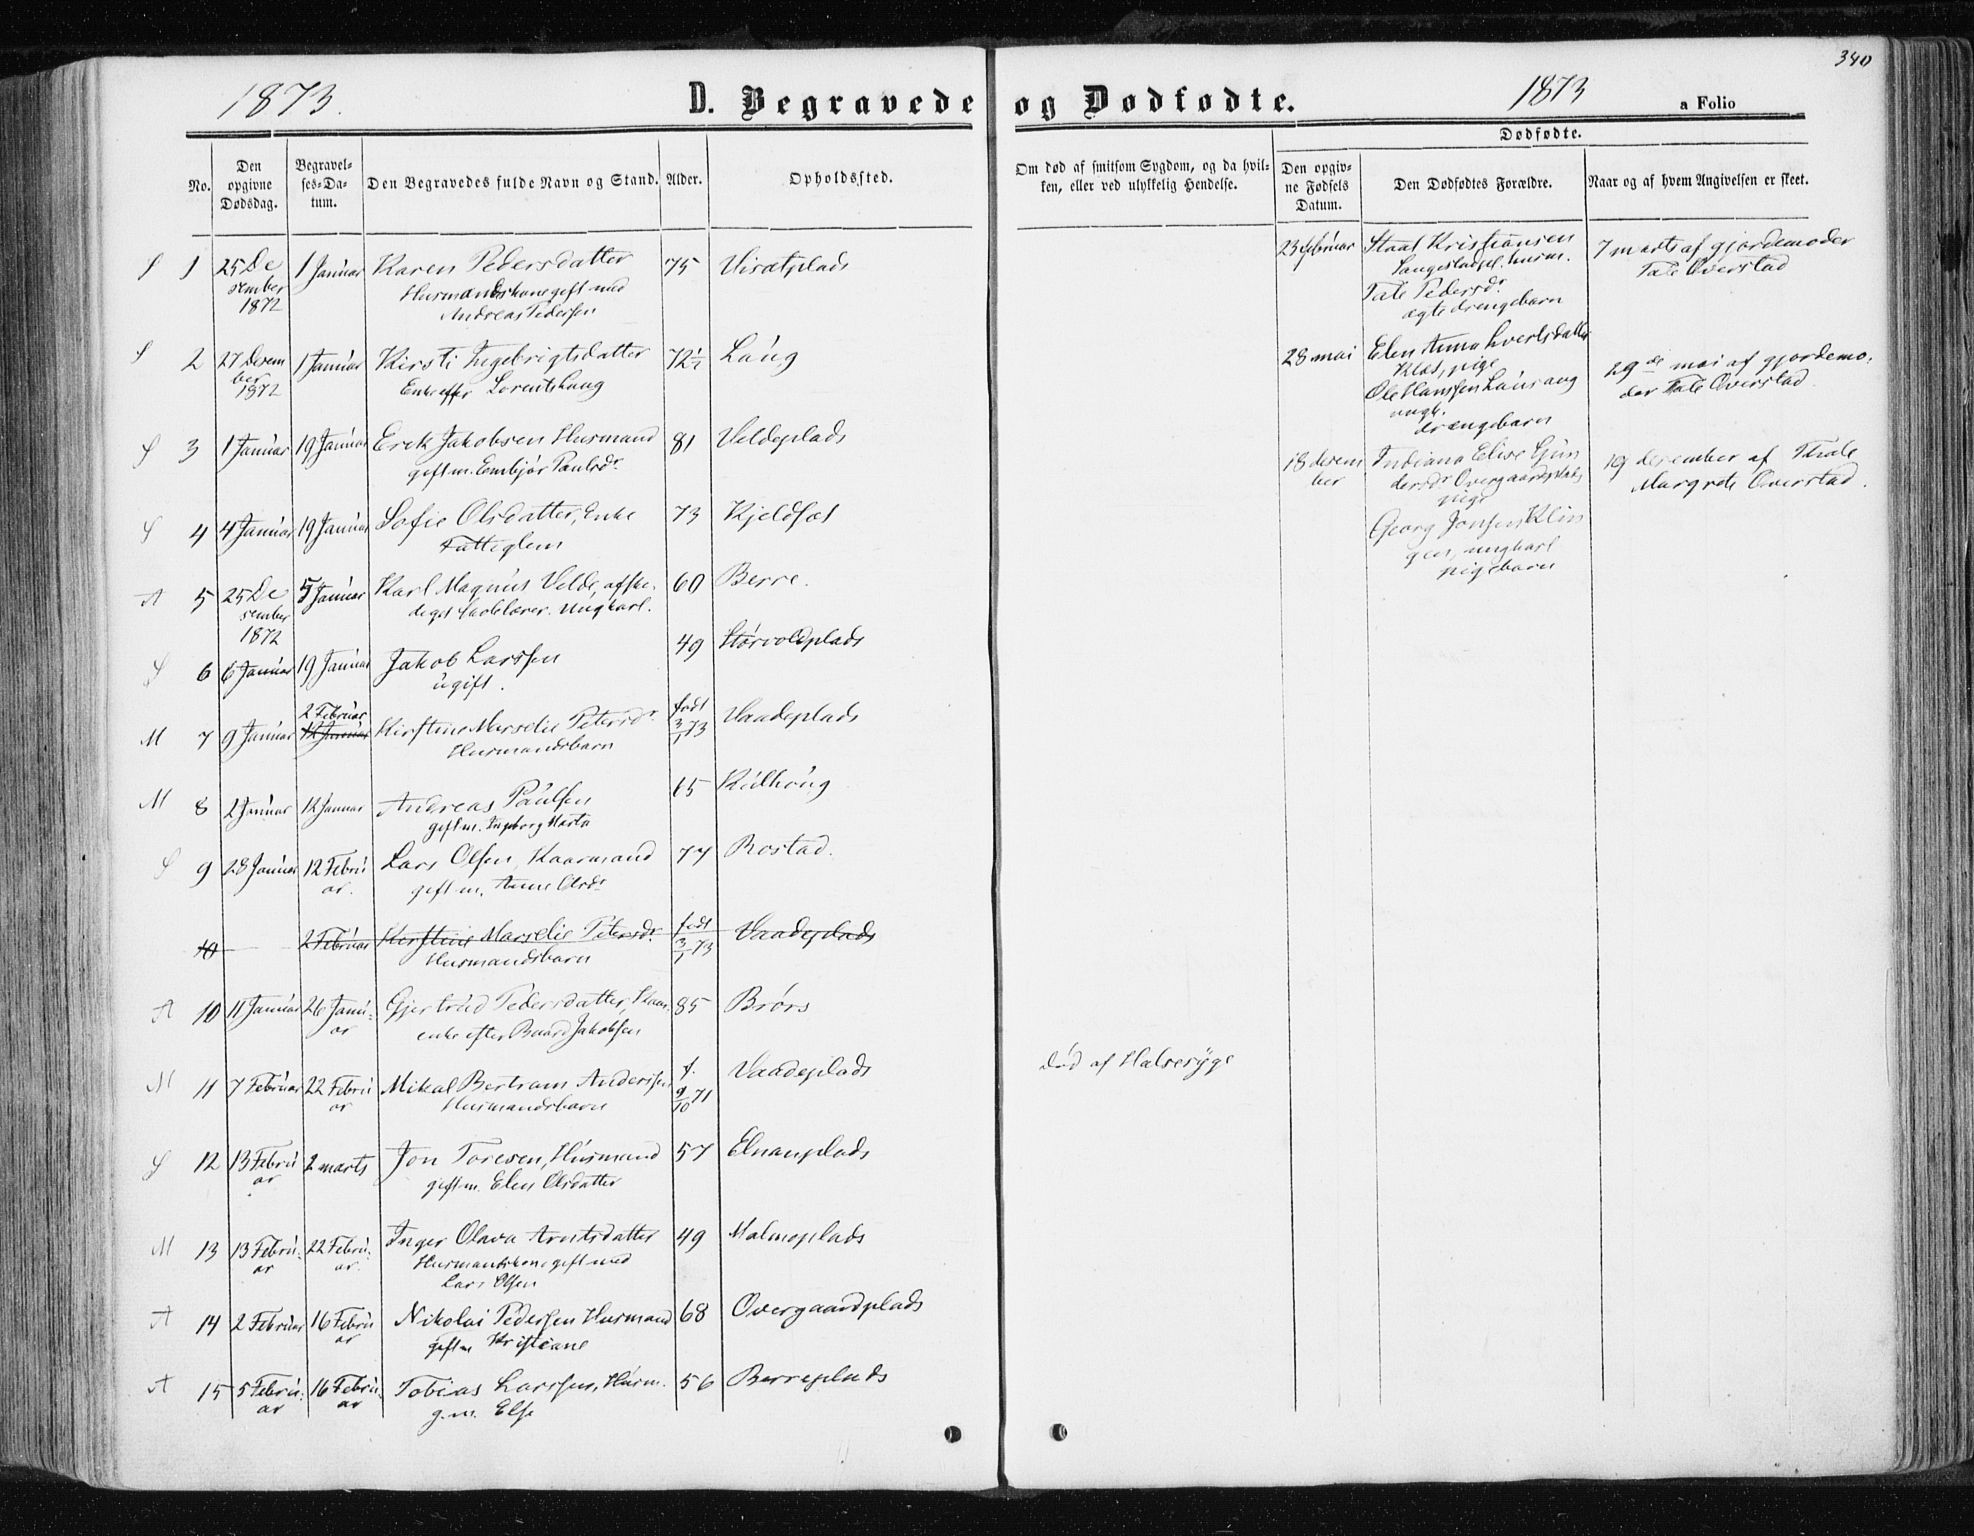 340
1873.
D. Begravede og Dødfødte.
1873
a Folio
No.
Den opgivne Dødsdag.
Begravelses-Datum.
Den Begravedes fulde Navn og Stand.
Alder.
Opholdssted.
Om død af smitsom Sygdom, og da hvilken, eller ved ulykkelig Hendelse.
Dødfødte.
Den opgivne Fødsels Datum.
Den Dødfødtes Forældre.
Naar og af hvem Angivelsen er skeet.
S 1 25 De 1 Januar Karen Pedersdatter 75
sember Husmandskone gift med
1872 Andreas Pedersen
S 2 27 Desem 1 Januar Kirsti Ingebrigtsdatter 72½ Laug
ber Enke efter Lorents Laug
1872
S 3 1 Januar 19 Januar Erik Jakobsen Husmand 81 Veldeplads
gift m. Paulsdr
S 4 4 Januar 19 Januar Sofie Olsdatter, Enke 73
Fattiglem
A 5 25 De 5 Januar Karl Magnus Velde, afske 60 Berre.
sember diget Skolelærer. Ungkarl.
1872
S 6 6 Januar 19 Januar Jakob Larssen 49
ugift.
M 7 9 Januar 2 Februar 12 Januar Kirstine Marselie Petersdr født 3/1 73 Vaadeplads
Husmandsbarn
M 8 2 Januar 12 Januar Andreas Paulsen 65
gift m. Ingeborg Marta
S 9 28 Januar 12 Febru Lars Olsen, Kaarmand 77 Rostad.
ar. gift m. Anne Olsdr
10 2 Februar Kirstine Marselie Petersdr. født 3/1 73 Vaadeplads
Husmandsbarn
A 10 11 Januar 26 Janu Gjertrud Pedersdatter, Kaar 85 Brørs
ar enke efter Baard Jakobsen
M 11 7 Februar 22 Febru Mikal Bertram Anderssen f. 9/10 71 Vaadeplads
ar Husmandsbarn
død af Halsesyge
S 12 13 Febru 2 marts Jon Toresen, Husmand 57 Elnanplads
ar gift m. Elen Olsdatter
M 13 13 Febru 22 Febru Inger Olava Arntsdatter 49 Malmoplads
ar ar. Husmandskone gift med
Lars Olsen
A 14 2 Februar 16 Febru Nikolai Pedersen Husmand 68 Overgaardplads
ar gift m Kristiane
A 15 5 Febru 16 Febru Tobias Larssen, Husm. 56 Berreplads
ar ar g.m. Else
23 Februar Staal Kristiansen 7 marts af gjordemoder
husm. Tale Overstad
Tale Pedersdr
ægte drengebarn
28 mai Elen Anna
pige 29de mai af gjordemo.
Ole Hanssen der Tale Overstad.
ungk.
drengebarn
18 desem Indiana Elise Gun 19 desember af Thale
ber dersdr Overgaardsplads Margrete Overstad.
pige
Georg Jonsen Klin
gen, ungkarl
pigebarn